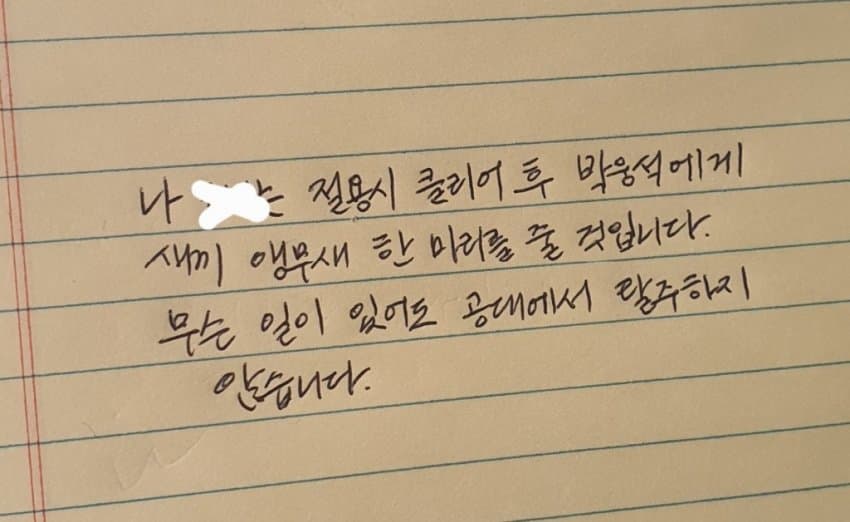 나 는 절용시 클리어 후 박웅석에게
새끼 앵무새 한 마리를 줄 것입니다.
무슨 일이 있어도 공대에서 탈주하지
않습니다.